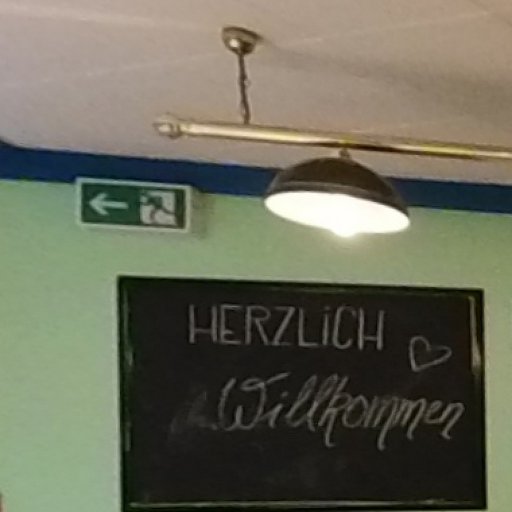 HERZLiCH
Willkommen